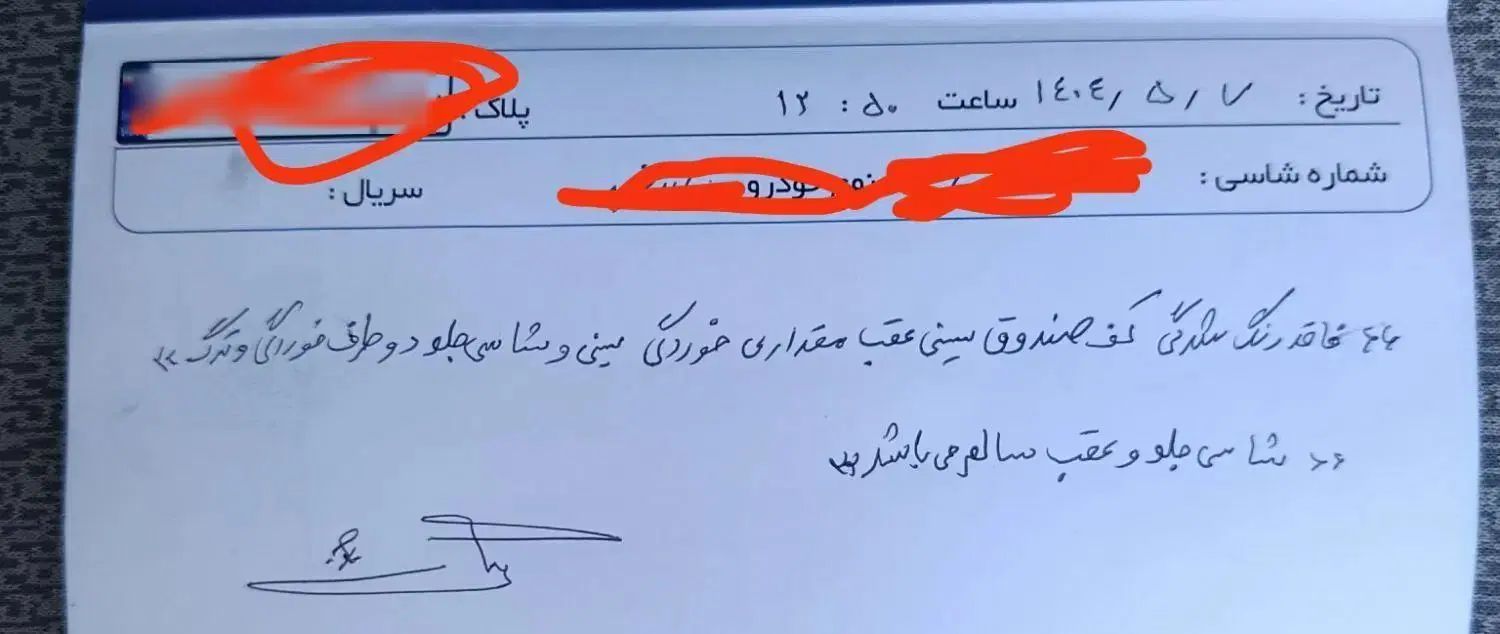 تاریخ: ۱۴۰۴/۵/۷ ساعت ۱۲:۵۰ پلاک:
شماره شاسی: خودرو سریال:
فاقد رنگ شدگی کف صندوق سینی عقب مقداری خوردگی سینی و شاسی جلو دو طرف خوردگی و ترک
شاسی جلو و عقب سالم می باشد